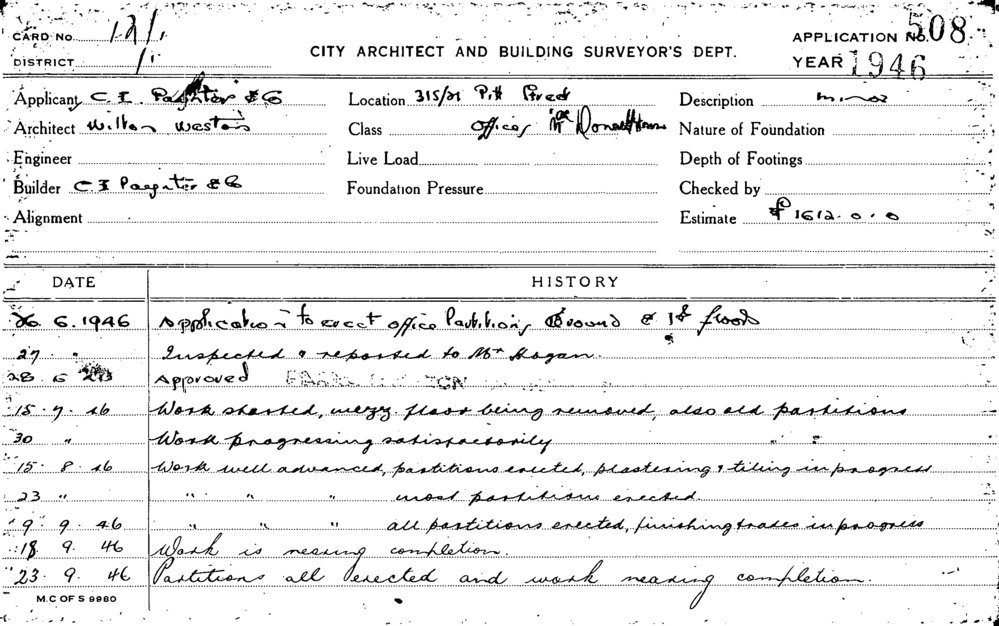 CARD No. 12/1 CITY ARCHITECT AND BUILDING SURVEYOR'S DEPT. APPLICATION No. 508
DISTRICT 1 YEAR 1946
Applicant C. I. Paynter & Co Location 315/21 Pitt Street Description minor
Architect Wilton Weston Class Offices Nature of Foundation
Engineer Live Load Depth of Footings
Builder C I Paynter & Co Foundation Pressure Checked by
Alignment Estimate £1612.0.0
DATE HISTORY
26. 6. 1946 Application to erect office Partitions Ground & 1st floors
27 " Inspected & reported to Mr Hogan.
28. 6 Approved
15. 7. 46 Work started, mezz. floor being removed, also old partitions
30 " Work progressing satisfactorily
15. 8. 46 Work well advanced, partitions erected, plastering & tiling in progress
23 " " " " most partitions erected
9. 9. 46 " " " all partitions erected, finishing trades in progress
18. 9. 46 Work is nearing completion.
23. 9. 46 Partitions all erected and work nearing completion.
M.C OF S 9980